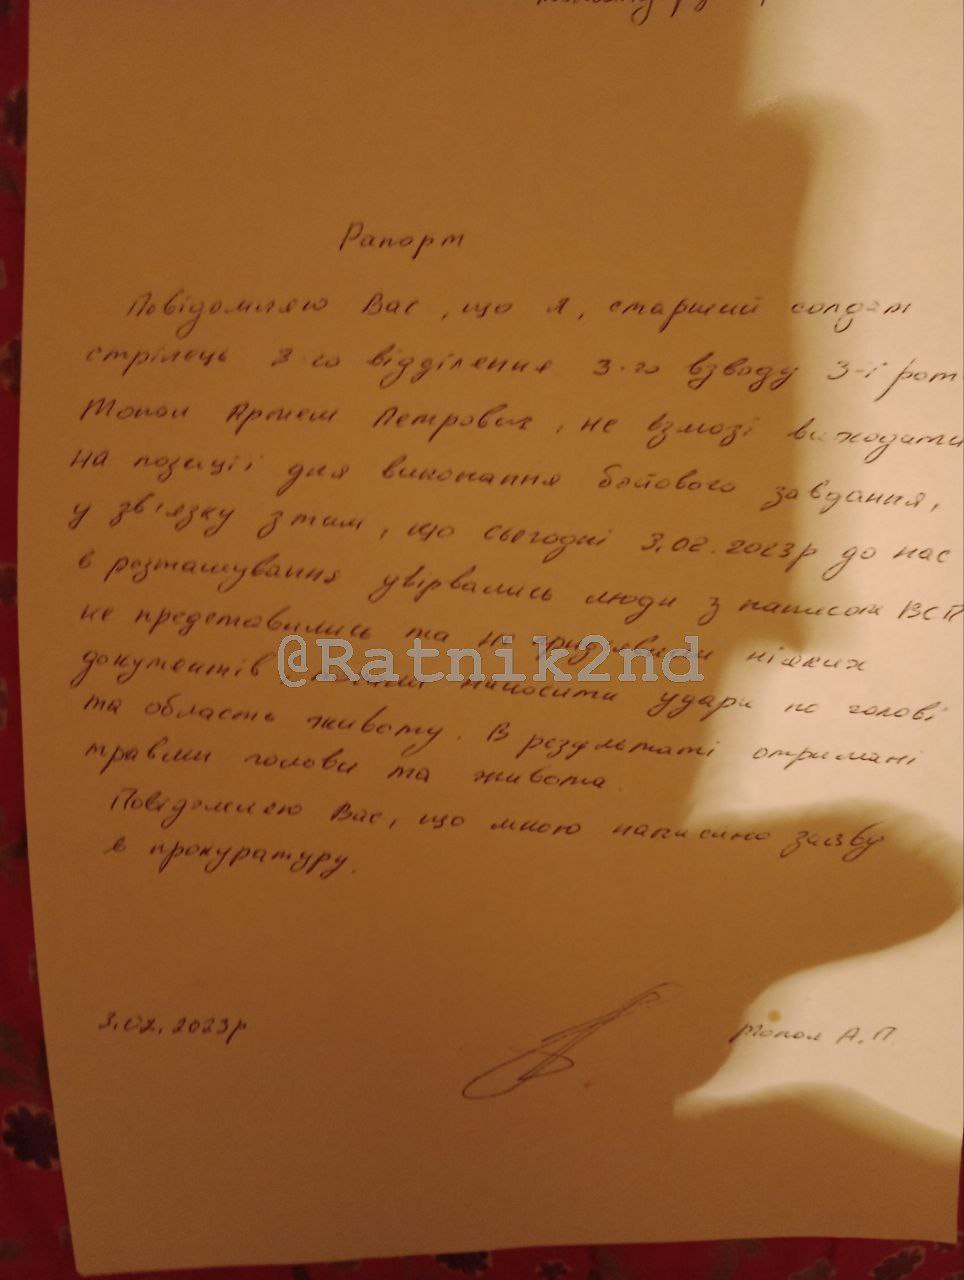 Рапорт
Повідомляю Вас, що я, старший солдат
стрілець 3-го відділення 3-го взводу 3-ї рот
Топол Артем Петрович, не взмозі виходити
на позиції для виконання бойового завдання,
у зв'язку з тим, що сьогодні 3.02.2023р до нас
в розташування увірвались люди з написом ВСП
не представились та не предъявили ніяких
@Ratnik2nd
документів почали наносити удари по голові
та область живота. В результаті отримані
травми голови та живота.
Повідомляю Вас, що мною написано заяву
в прокуратуру.
3.02.2023р
Топол А.П.